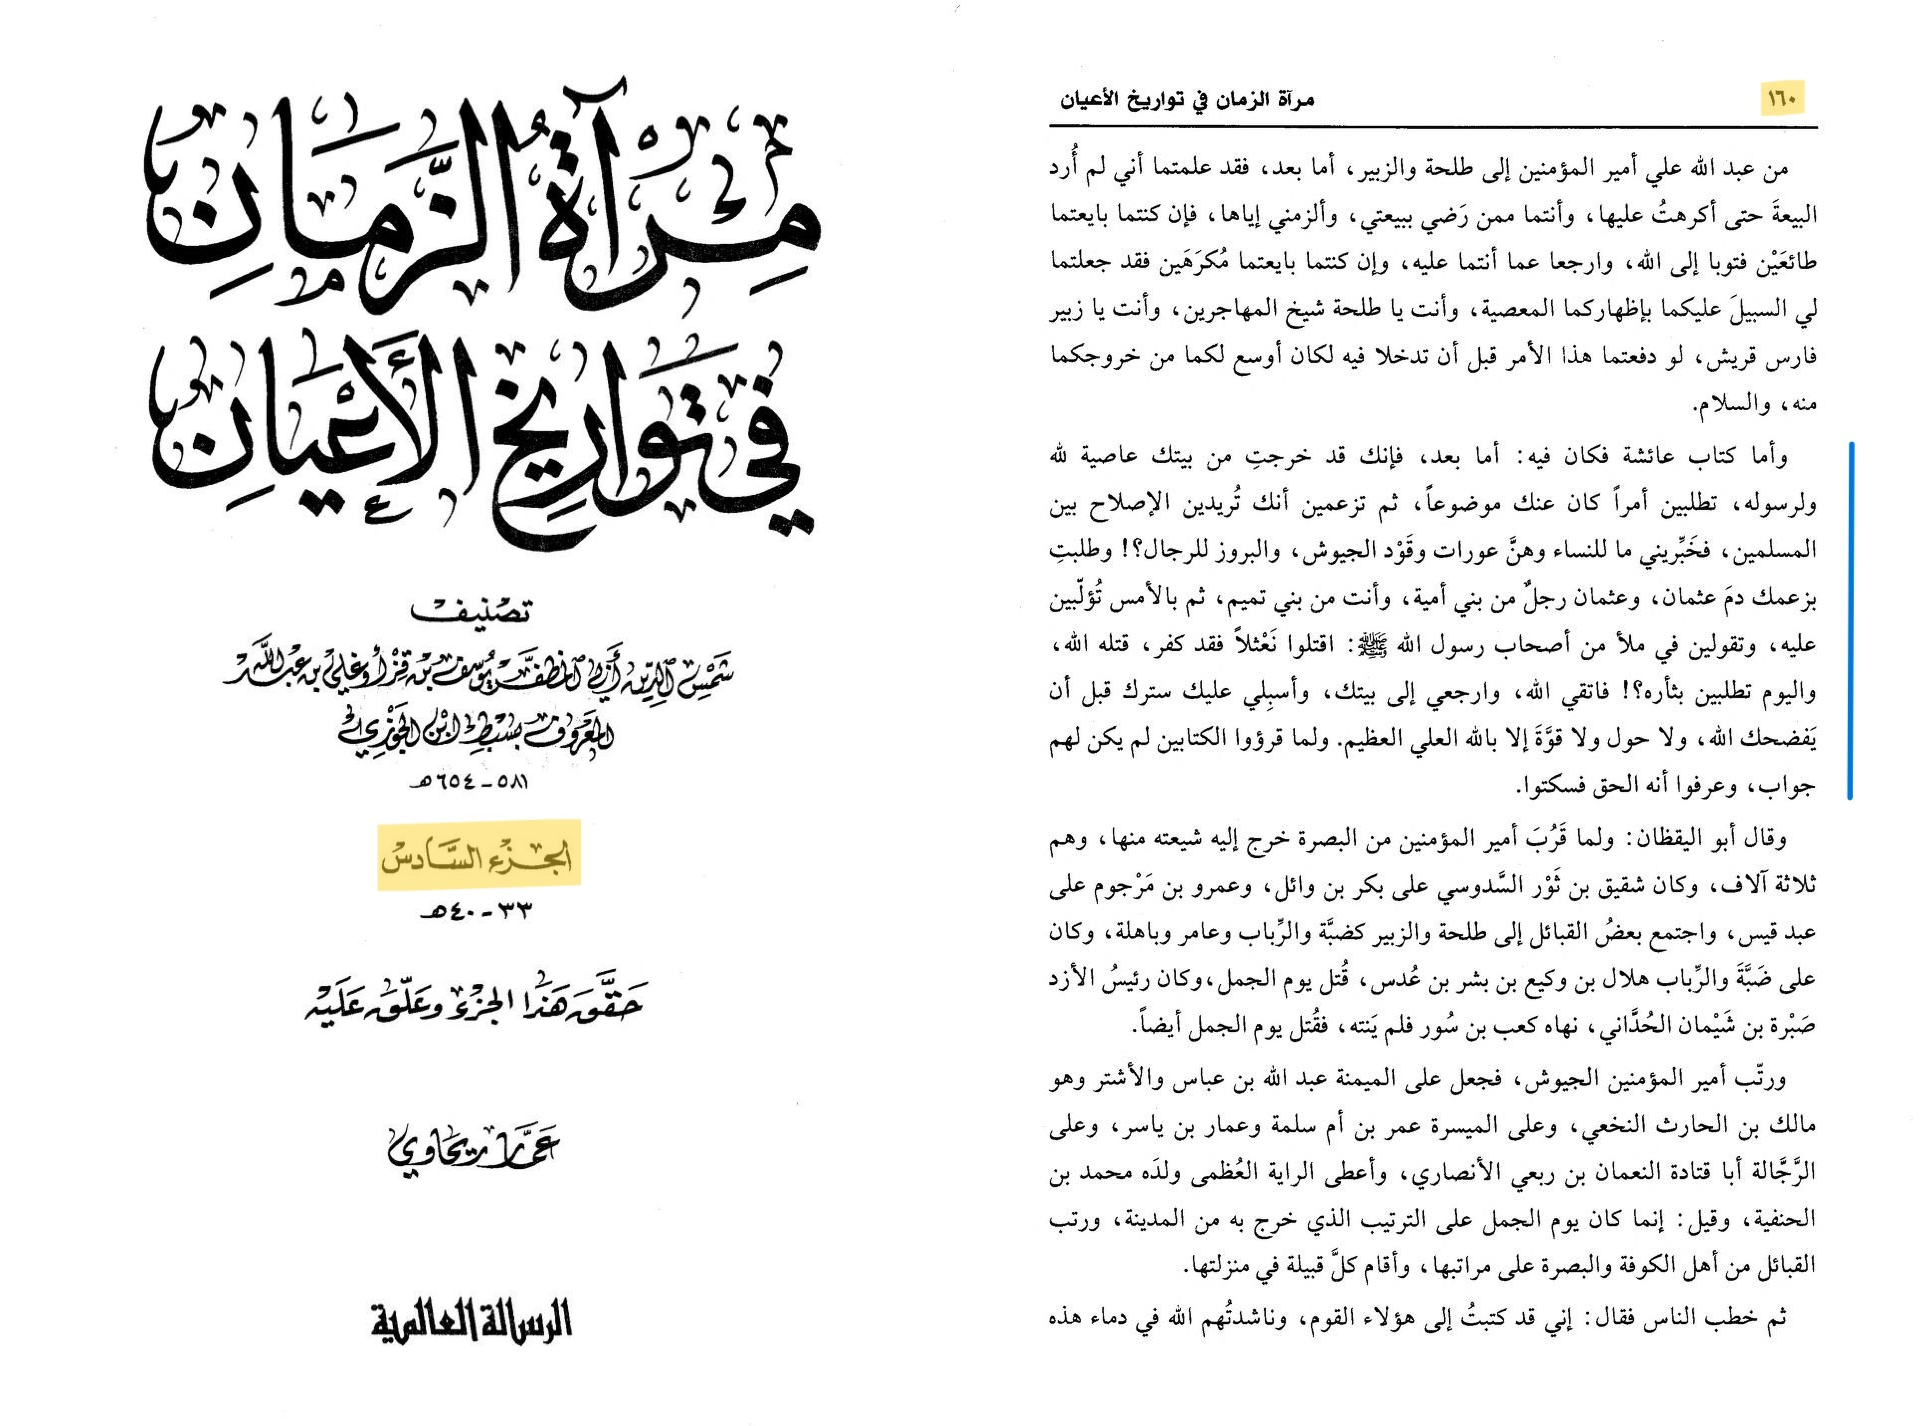 مِرآةُ الزَّمَانِ
في تَوَارِيخ الأَعْيَانِ
تصنيف
شمس الدين أبي المظفر يوسف بن قزأوغلي بن عبد الله
المعروف بسبط ابن الجوزي
٥٨١ - ٦٥٤ هـ
الجزء السَّادس
٣٣ - ٤٠ هـ
حَقَّقَ هَذَا الجزء وعَلّق عَلَيه
عمَّار ريحاوي
الرسالة العالمية
١٦٠
مرآة الزمان في تواريخ الأعيان
من عبد الله علي أمير المؤمنين إلى طلحة والزبير، أما بعد، فقد علمتما أني لم أُرد
البيعةَ حتى أكرهتُ عليها، وأنتما ممن رَضي ببيعتي، وألزمني إياها، فإن كنتما بايعتما
طائعَيْن فتوبا إلى الله، وارجعا عما أنتما عليه، وإن كنتما بايعتما مُكرَهَين فقد جعلتما
لي السبيلَ عليكما بإظهاركما المعصية، وأنت يا طلحة شيخ المهاجرين، وأنت يا زبير
فارس قريش، لو دفعتما هذا الأمر قبل أن تدخلا فيه لكان أوسع لكما من خروجكما
منه، والسلام.
وأما كتاب عائشة فكان فيه: أما بعد، فإنك قد خرجتِ من بيتك عاصية لله
ولرسوله، تطلبين أمراً كان عنك موضوعاً، ثم تزعمين أنك تُريدين الإصلاح بين
المسلمين، فخَبِّريني ما للنساء وهنَّ عورات وقَوْد الجيوش، والبروز للرجال؟! وطلبتِ
بزعمك دمَ عثمان، وعثمان رجلٌ من بني أمية، وأنت من بني تميم، ثم بالأمس تُؤلّبين
عليه، وتقولين في ملأ من أصحاب رسول الله ﷺ: اقتلوا نَعْثلاً فقد كفر، قتله الله،
واليوم تطلبين بثأره؟! فاتقي الله، وارجعي إلى بيتك، وأسبِلي عليك سترك قبل أن
يَفضحك الله، ولا حول ولا قوَّةَ إلا بالله العلي العظيم. ولما قرؤوا الكتابين لم يكن لهم
جواب، وعرفوا أنه الحق فسكتوا.
وقال أبو اليقظان: ولما قَرُبَ أمير المؤمنين من البصرة خرج إليه شيعته منها، وهم
ثلاثة آلاف، وكان شقيق بن ثَوْر السَّدوسي على بكر بن وائل، وعمرو بن مَرْجوم على
عبد قيس، واجتمع بعضُ القبائل إلى طلحة والزبير كضبَّة والرِّباب وعامر وباهلة، وكان
على ضَبَّةَ والرِّباب هلال بن وكيع بن بشر بن عُدس، قُتل يوم الجمل،وكان رئيسُ الأزد
صَبْرة بن شَيْمان الحُدَّاني، نهاه كعب بن سُور فلم يَنته، فقُتل يوم الجمل أيضاً.
ورتّب أمير المؤمنين الجيوش، فجعل على الميمنة عبد الله بن عباس والأشتر وهو
مالك بن الحارث النخعي، وعلى الميسرة عمر بن أم سلمة وعمار بن ياسر، وعلى
الرَّجَّالة أبا قتادة النعمان بن ربعي الأنصاري، وأعطى الراية العُظمى ولدَه محمد بن
الحنفية، وقيل: إنما كان يوم الجمل على الترتيب الذي خرج به من المدينة، ورتب
القبائل من أهل الكوفة والبصرة على مراتبها، وأقام كلَّ قبيلة في منزلتها.
ثم خطب الناس فقال: إني قد كتبتُ إلى هؤلاء القوم، وناشدتُهم الله في دماء هذه